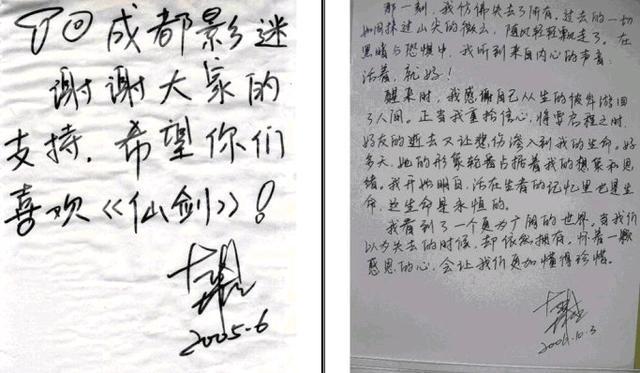 成都影迷
谢谢大家的
支持，希望你们
喜欢《仙剑》！
2005.6
那一刻，我仿佛失去了所有。过去的一切
如同抹过山尖的微云，随风轻轻飘走了。在
黑暗与恐惧中，我听到来自内心的声音：
活着，就好！
醒来时，我感谢自己从生的彼岸游回
了人间。正当我重拾信心，将要启程之时，
好友的逝去又让悲伤渗入到我的生命。好
多天，她的形象轮番占据着我的想象和思
绪。我开始明白，活在生者的记忆里也是生
命，这生命是永恒的。
我看到了一个更为广阔的世界。当我们
以为失去的时候，却依然拥有。怀着一颗
感恩的心，会让我们更加懂得珍惜。
2006.10.3